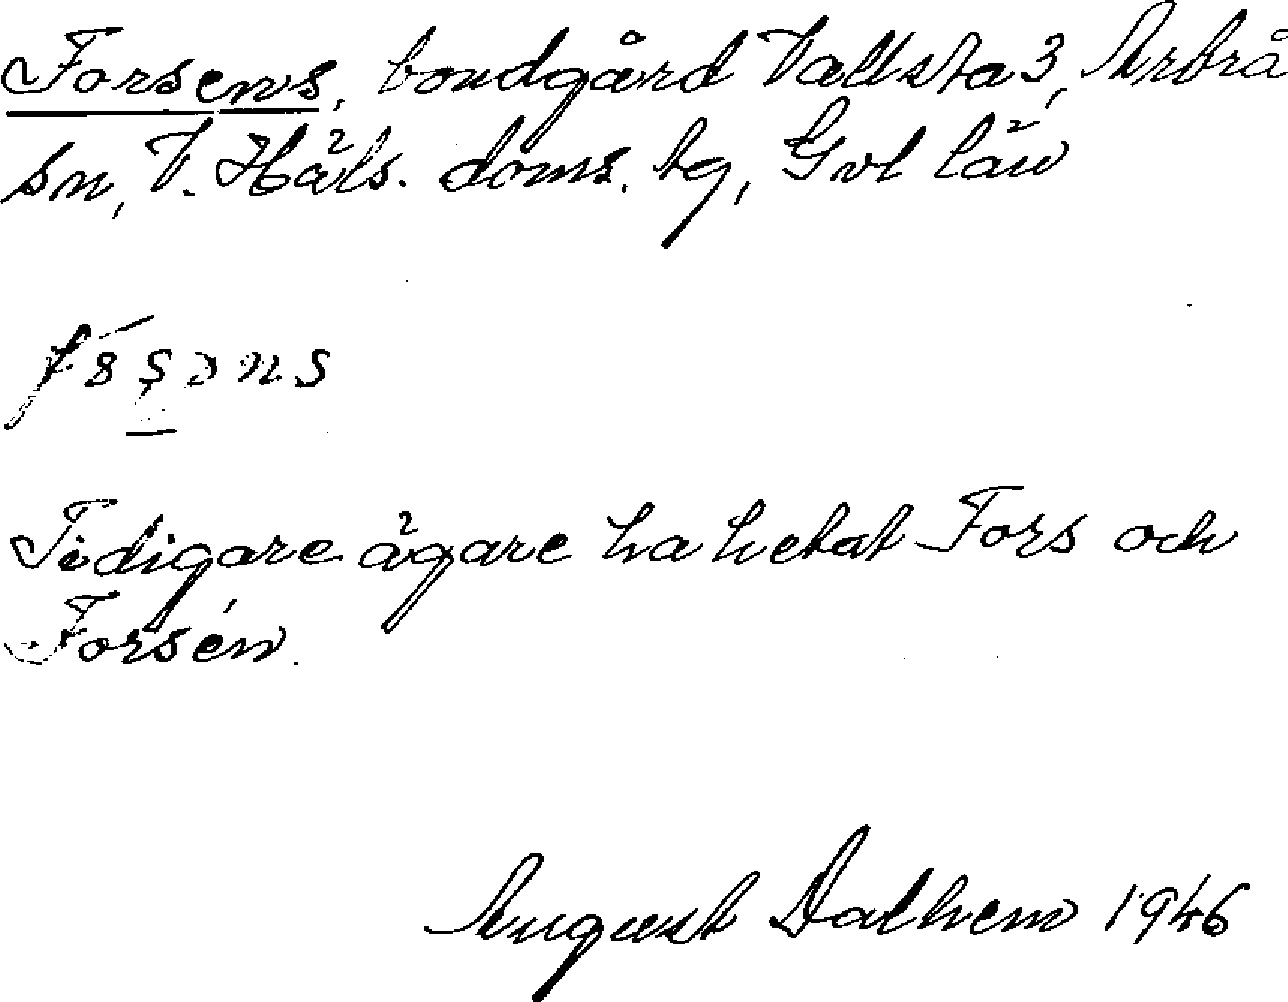 Forsens, bondgård Vallsta 3, Arbrå
sn, V. Häls. doms. tg, Gvl län
Tidigare ägare ha hetat Fors och
Forsén.
August Dalhem 1946